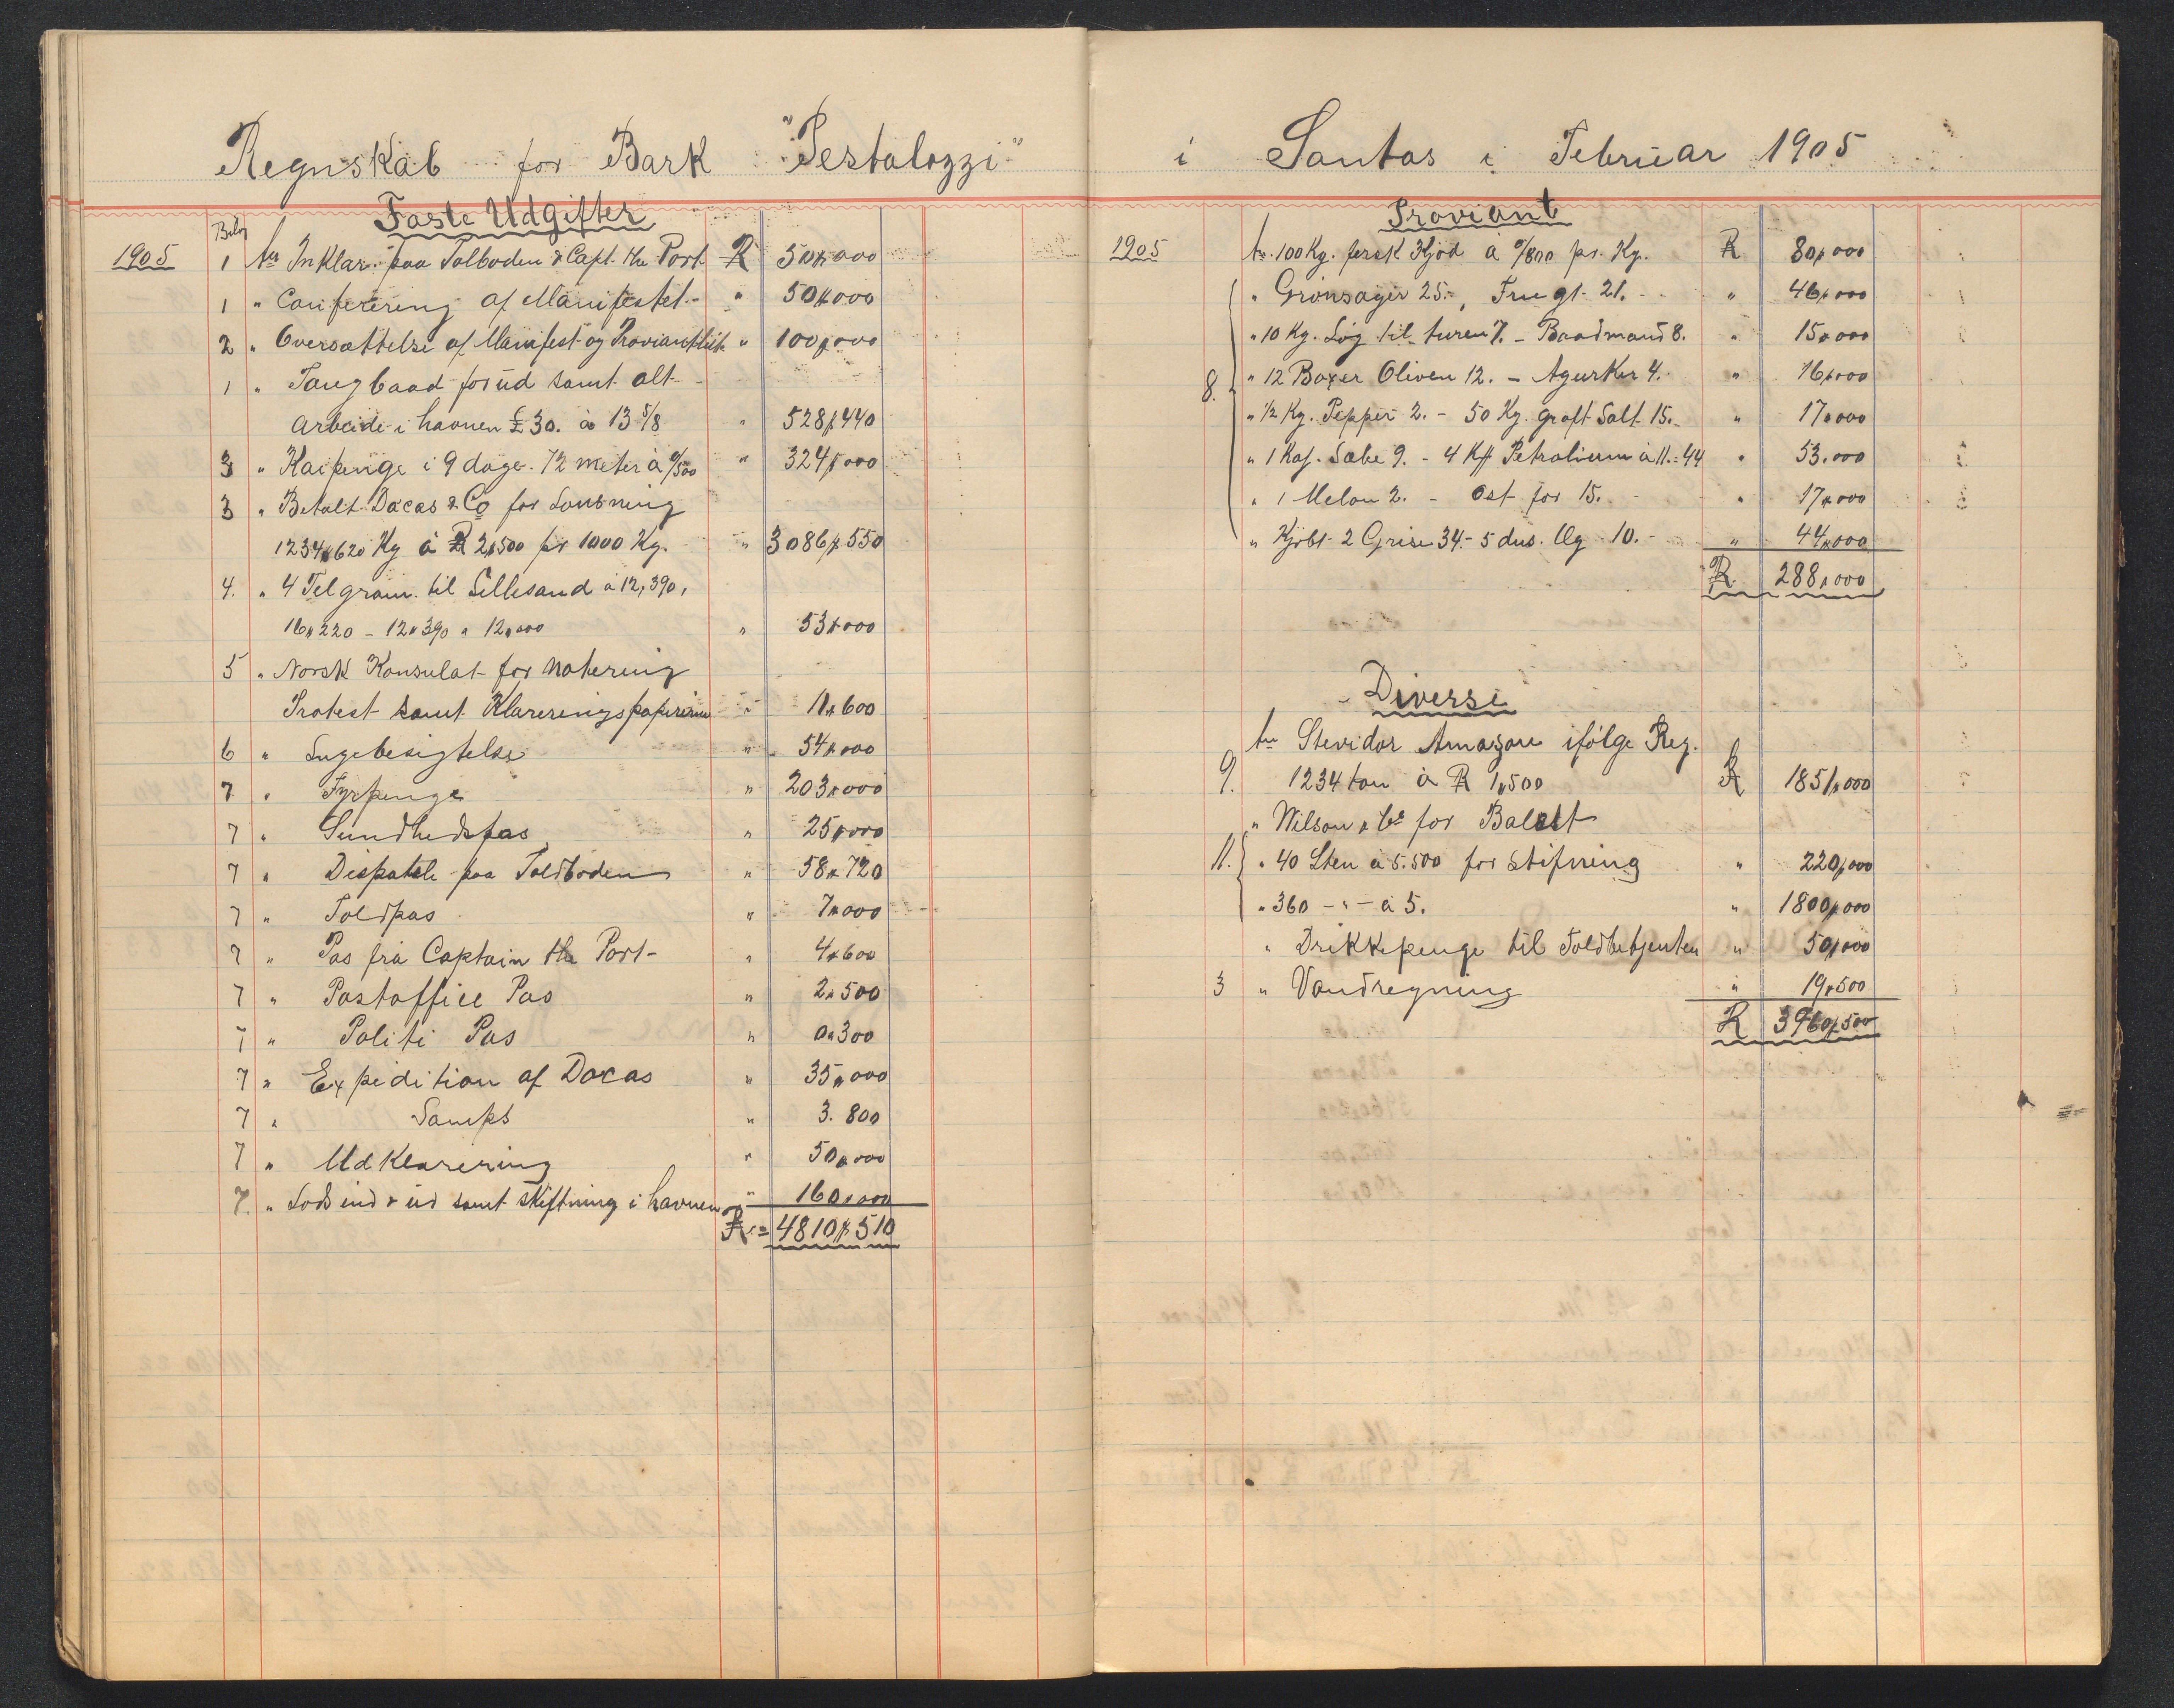 Regnskab for Bark "Pestalozzi"
Faste Udgifter
Bilag
1905 1 An Inklar. paa Tolboden & Capt. the Port R 50,000
1 " Conferering af Manifestet " 50,000
2 " Oversættelse af Manifest og Proviantliste " 100,000
1 " Taugbaad for ud samt alt
Arbeide i havnen £ 30. à 13 5/8 " 528,440
3 " Kaipenge i 9 dage. 72 meter à 0/500 " 324,000
3 " Betalt Docas & Co for Losning
1234,620 Kg à R 2,500 pr 1000 Kg. " 3086,550
4. " 4 Telgram. til Lillesand à 12,390,
16,220 - 12,390 " 12,000 " 53,000
5 " Norsk Konsulat for Notering
Protest samt Klareringspapirerne " 11,600
6 " Lugebesigtelse " 54,000
7 " Fyrpenge " 203,000
7 " Sundhedspas " 25,000
7 " Dispatch paa Toldboden " 58,720
7 " Toldpas " 7,000
7 " Pas fra Captain the Port " 4,600
7 " Postoffice Pas " 2,500
7 " Politi Pas " 0,300
7 " Expedition af Docas " 35,000
7 " Stamps " 3.800
7 " Udklarering " 50,000
7. " Lods ind & ud samt skiftning i havnen " 160,000
R = 4810,510
i Santos i Februar 1905
Proviant
1905 An 100 Kg. fersk Kjød à 0/800 pr. Kg. R 80,000
" Grønsager 25.-, Frugt 21. " 46,000
" 10 Kg. Løg til turen 7. - Baadmand 8. " 15,000
8. " 12 Boxer Oliven 12. - Agurker 4. " 16,000
" 1/2 Kg. Pepper 2. - 50 Kg. groft Salt 15. " 17,000
" 1 Kas. Sæbe 9. - 4 Kss Petrolium à 11. = 44 " 53.000
" 1 Melon 2. - Ost for 15. " 17,000
" Kjøbt 2 Grise 34.- 5 dus. Æg 10. " 44,000
R 288,000
Diverse
An Stevidor Amazone ifølge Reg.
9. 1234 ton à R 1,500 R 1851,000
" Wilson & Co for Balast
11. " 40 Sten à 5.500 for Stifning " 220,000
" 360 - " - à 5. " 1800,000
" Drikkepenge til Toldbetjenten " 50,000
3 " Vandregning " 19,500
R 3960,500